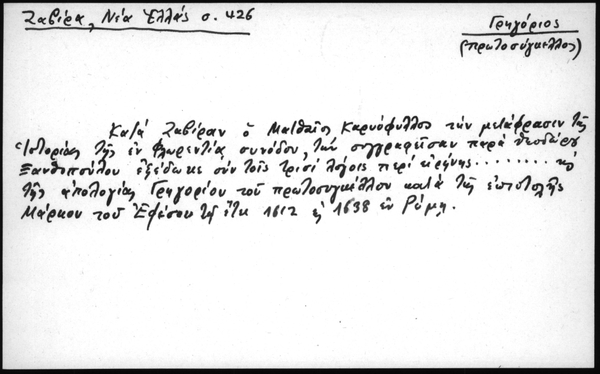 Ζαβίρα, Νέα Ἑλλάς σ. 426
Γρηγόριος
(πρωτοσύγκελλος)
Κατά Ζαβίραν ὁ Ματθαῖος Καρυόφυλλος τήν μετάφρασιν τῆς
Ἱστορίας τῆς ἐν Φλωρεντίᾳ συνόδου, τήν συγγραφεῖσαν παρά Θεοδώρου
Ξανθοπούλου ἐξέδωκε σύν τοῖς τρισί λόγοις περί εἰρήνης......... κ
τῆς ἀπολογίας Γρηγορίου τοῦ πρωτοσυγκέλλου κατά τῆς ἐπιστολῆς
Μάρκου τοῦ Ἐφέσου τῷ ἔτει 1612 ἤ 1638 ἐν Ρώμῃ.